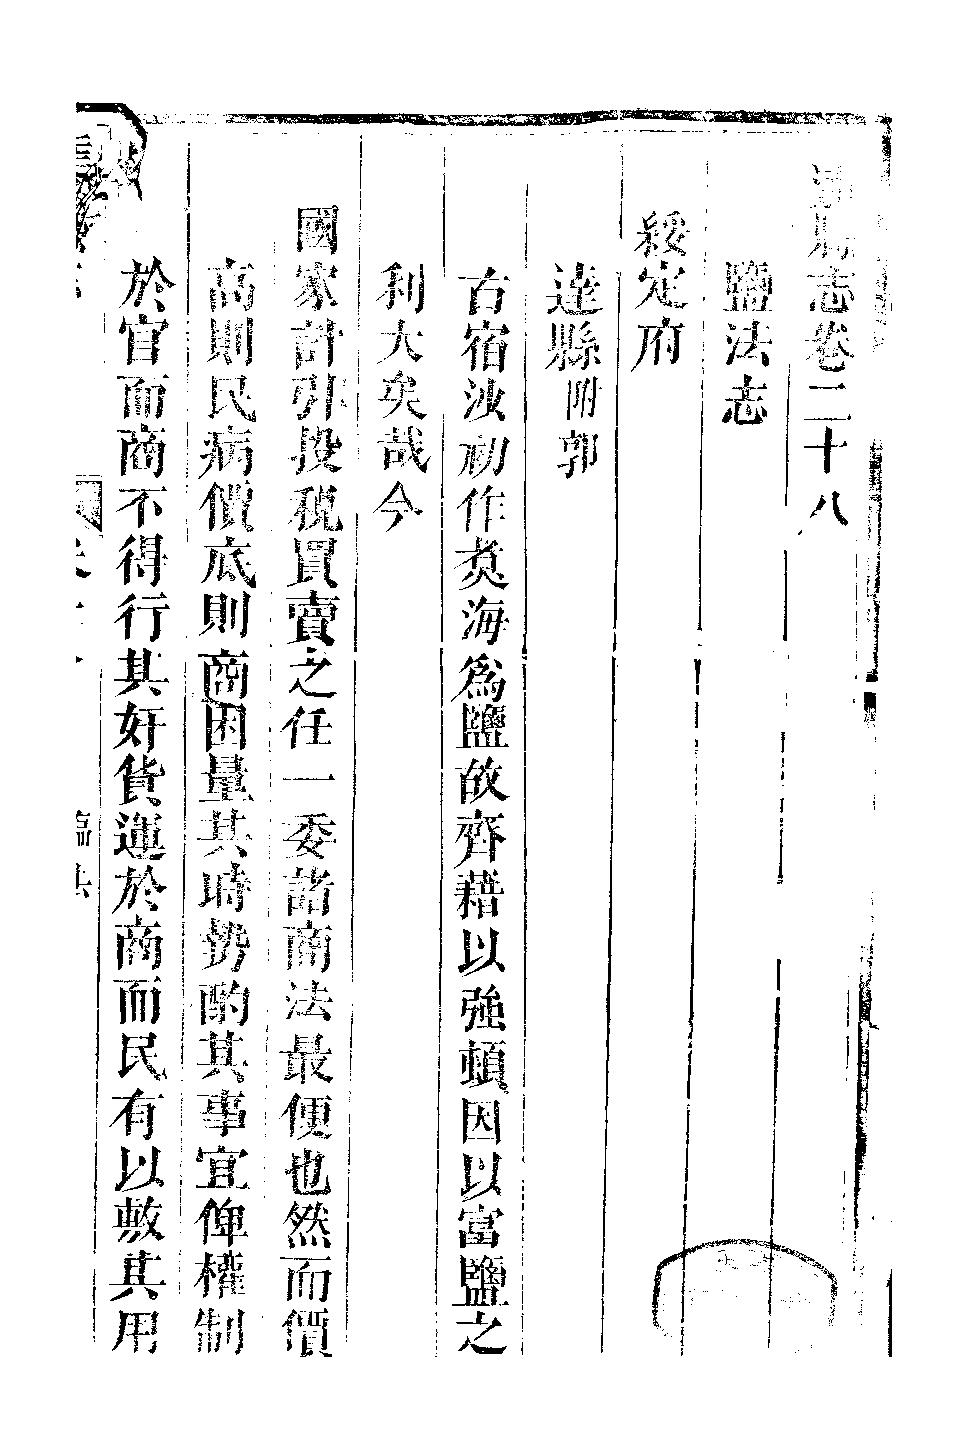 達縣志卷二十八
鹽法志
綏定府
達縣附郭
古宿沙初作煑海爲鹽故齊藉以強頓因以富鹽之
利大矣哉今
國家計引投税買賣之任一委諸商法最便也然而價
高則民病價底則商困量其時势酌其事宜俾權制
於官而商不得行其奸貨運於商而民有以敷其用